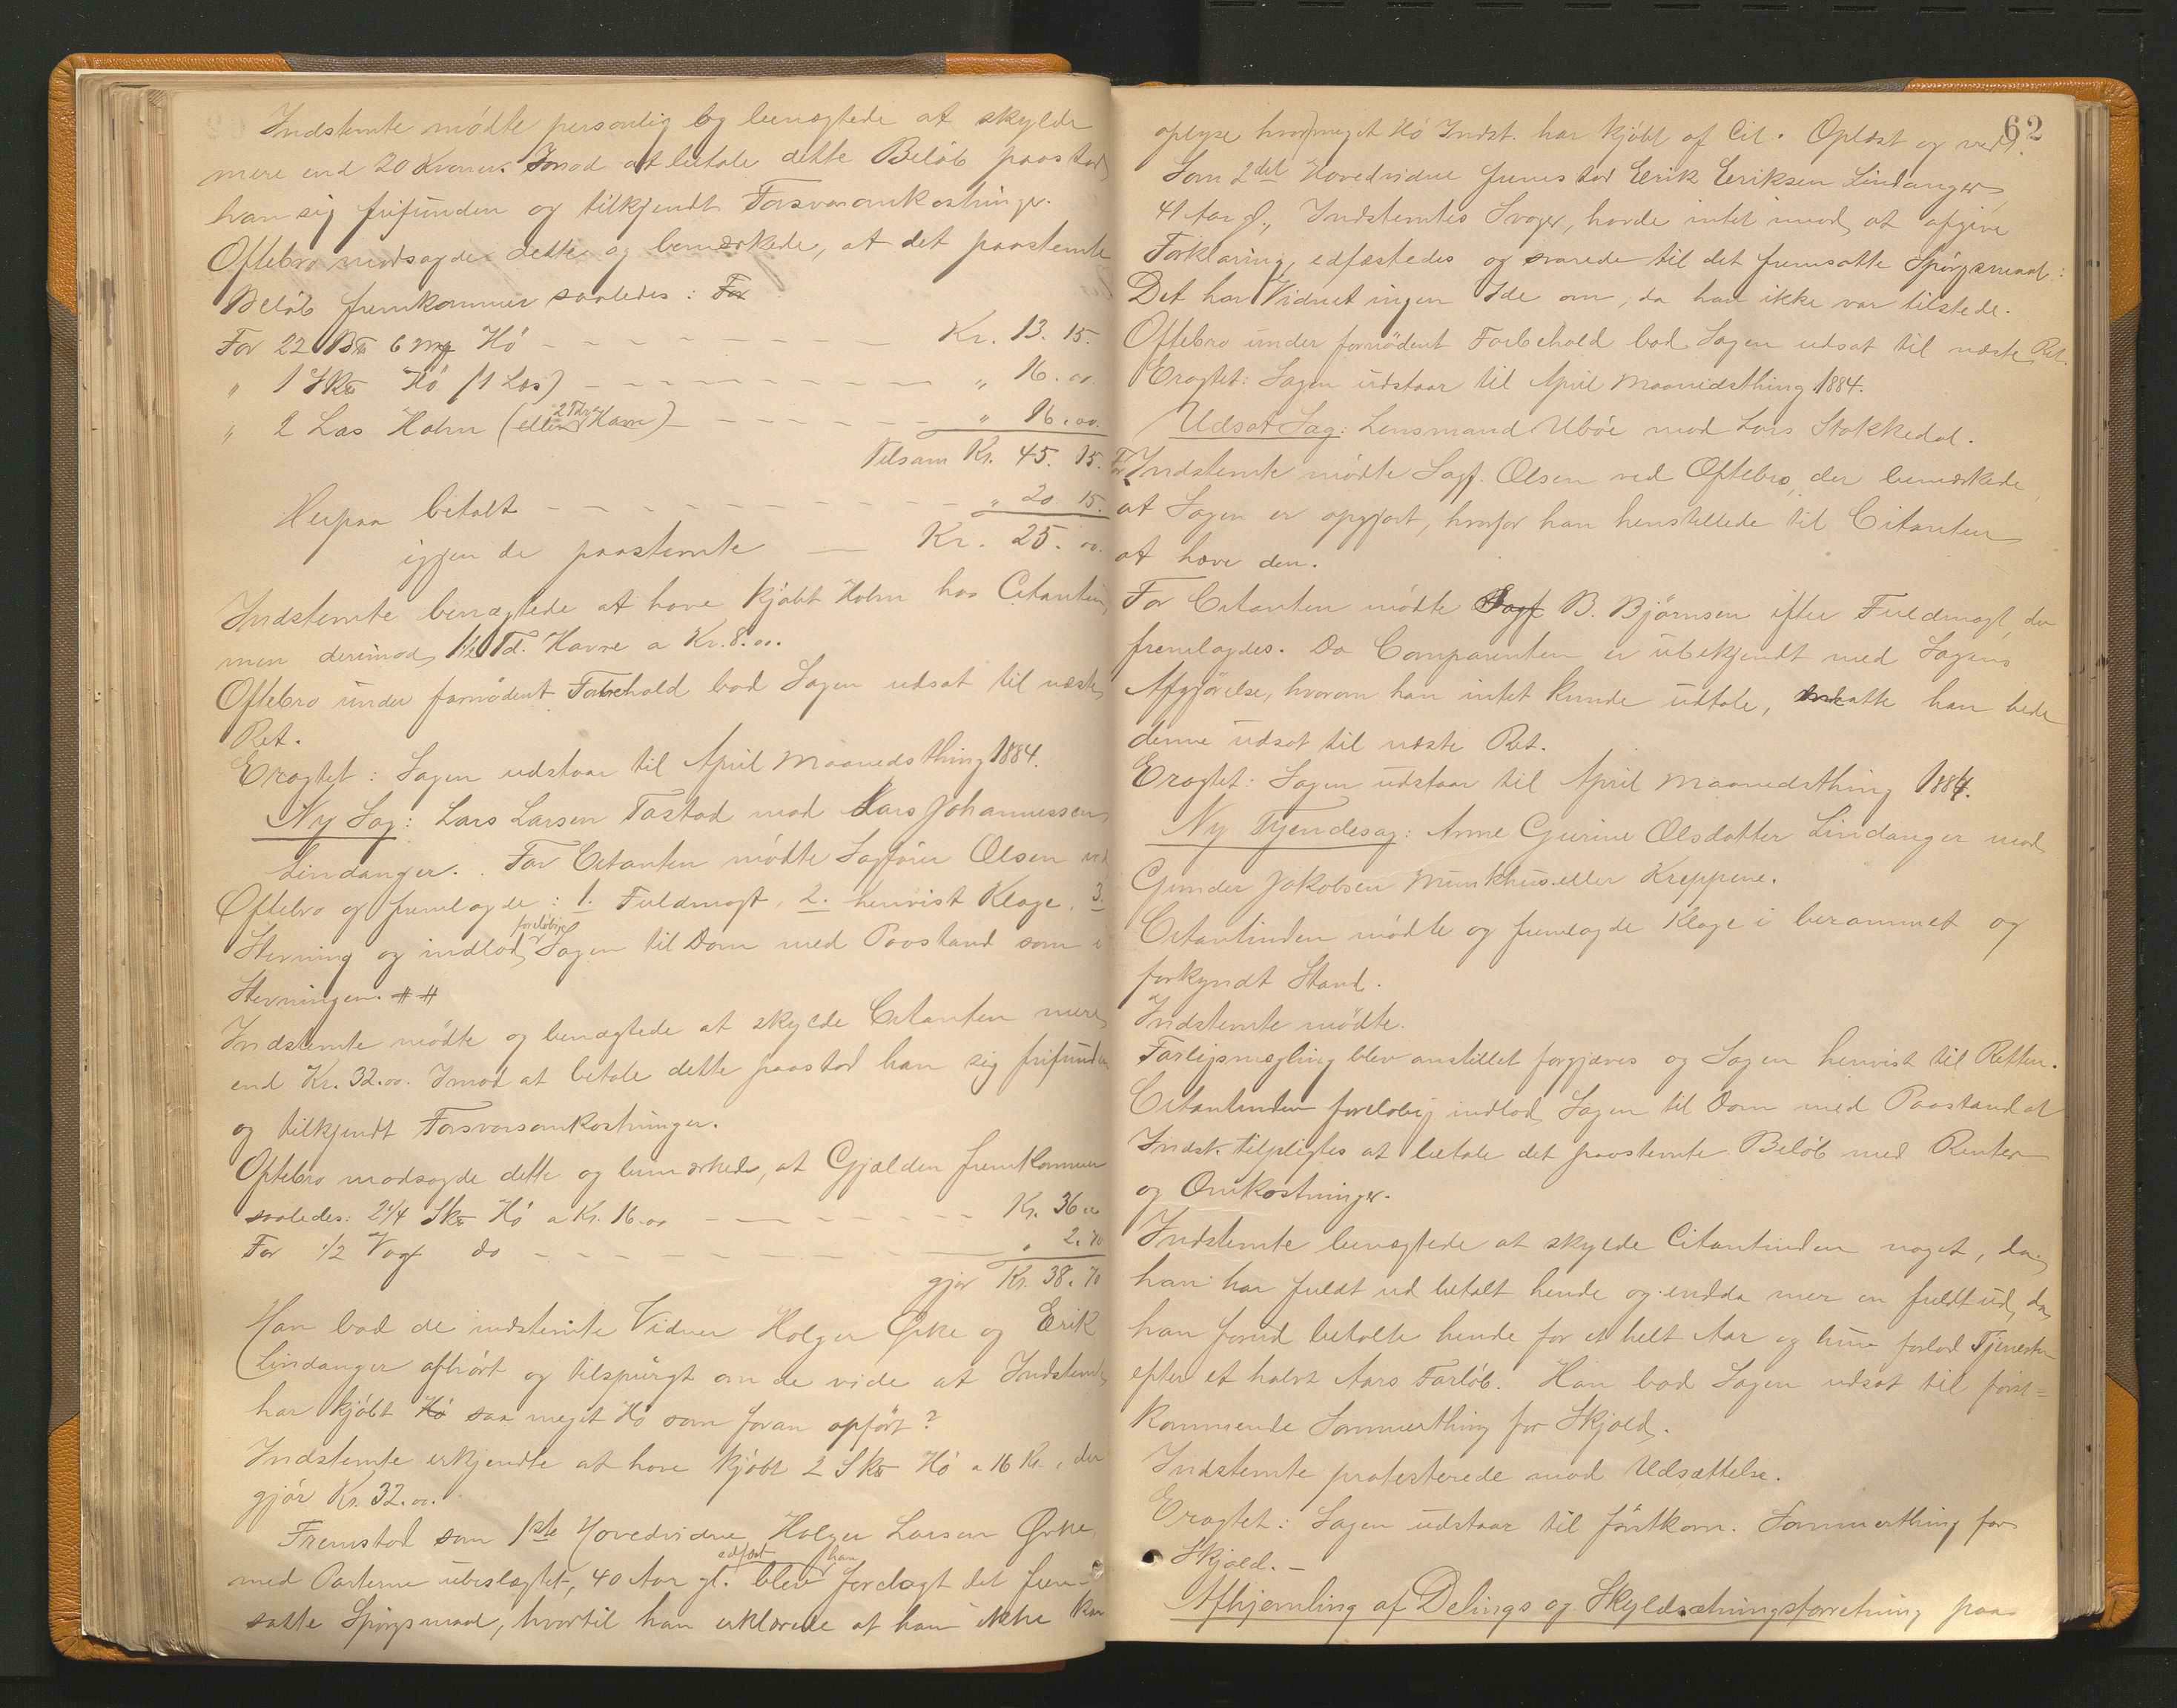 Indstemte mødte personlig og benægtede at skylde
mere end 20 Kroner. Imod at betale dette Beløb paastod
han sig frifunden og tilkjendt Forsvarsomkostninger.
Oftebro modsagde dette og bemærkede, at det paastemte
Beløb fremkommer saaledes: For
For 22 B℔ 6 mg Hö - - - Kr. 13. 15.
" 1 Sk℔ Hö (1 Læs) - - - " 16. 00.
" 2 Læs Halm (eller 2 Tdr. Havre) - - - " 16. 00.
Tilsam Kr. 45. 15.
Herpaa betalt - - - " 20. 15.
igjen de paastemte - Kr. 25. 00.
Indstemte benægtede at have kjøbt Halm hos Citanten,
men derimod 1½ Td. Havre a Kr. 8.00.
Oftebro under fornødent Forbehold bad Sagen udsat til næste
Ret.
Eragtet: Sagen udstaar til April Maanedsthing 1884.
Ny Sag: Lars Larsen Tastad mod Lars Johannessen
Lindanger. For Citanten mødte Sagfører Olsen ved
Oftebro og fremlagde: 1. Fuldmagt, 2. henvist Klage, 3.
Stevning og indlod foreløbig Sagen til Dom med Paastand som i
Stevningen. # #
Indstemte mødte og benægtede at skylde Citanten mere
end Kr. 32.00. Imod at betale dette paastod han sig frifunden
og tilkjendt Forsvarsomkostninger.
Oftebro modsagde dette og bemærkede, at Gjælden fremkommer
saaledes: 2¼ Sk℔ Hö a Kr. 16.00 - - - Kr. 36.00
For ½ Vog do - - - " 2.70
gjør Kr. 38.70
Han bad de indstemte Vidner Holger Ørke og Erik
Lindanger afhørt og tilspurgt om de vide at Indstemte
har kjøbt Hö saa meget Hö som foran opført?
Indstemte erkjendte at have kjøbt 2 Sk℔ Hö a 16 Kr., der
gjør Kr. 32.00.
Fremstod som 1ste Hovedvidne Holger Larsen Ørke,
med Parterne ubeslægtet, 40 Aar gl. edfæst blev han forelagt det frem-
satte Spørgsmaal, hvortil han erklærede at han ikke kan
62
oplyse hvormeget Hö Indst. har kjøbt af Cit. Oplæst og vedt.
Som 2det Hovedvidne fremstod Erik Eriksen Lindanger,
41 Aar gl., Indstemtes Svoger, havde intet imod at afgive
Forklaring, edfæstedes og svarede til det fremsatte Spørgsmaal:
Det har Vidnet ingen Ide om, da han ikke var tilstede.
Oftebro under fornødent Forbehold bad Sagen udsat til næste Ret.
Eragtet: Sagen udstaar til April Maanedsthing 1884.
Udsat Sag: Lensmand Ubøe mod Lars Stakkedal.
For Indstemte mødte Sagf. Olsen ved Oftebro, der bemærkede
at Sagen er opgjort, hvorfor han henstillede til Citanten
at hæve den.
For Citanten mødte Sagf B. Bjørnsen efter Fuldmagt, der
fremlagdes. Da Comparenten er ubekjendt med Sagens
Afgjørelse, hvorom han intet kunde udtale, maatte han bede
denne udsat til næste Ret.
Eragtet: Sagen udstaar til April Maanedsthing 1884.
Ny Tjendesag: Anne Gurine Olsdatter Lindanger mod
Gunder Jakobsen Munkhus eller Kreppene.
Citantinden mødte og fremlagde Klage i berammet og
forkyndt Stand.
Indstemte mødte.
Forligsmægling blev anstillet forgjæves og Sagen henvist til Retten.
Citantinden foreløbig indlod Sagen til Dom med Paastand at
Indst. tilpligtes at betale det paastemte Beløb med Renter
og Omkostninger.
Indstemte benægtede at skylde Citantinden noget, da
han har fuldt ud betalt hende og endda mer en fuldt ud, da
han forud betalte hende for et helt Aar og hun forlod Tjenesten
efter et halvt Aars Forløb. Han bad Sagen udsat til først=
kommende Sommerthing for Skjold.
Indstemte protesterede mod Udsættelse.
Eragtet: Sagen udstaar til førstkom. Sommerthing for
Skjold. -
Afhjemling af Delings og Skyldsætningsforretning paa